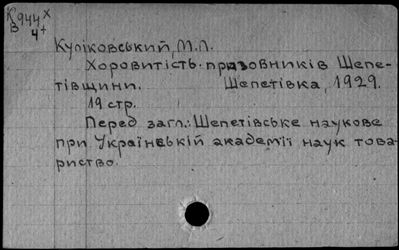 К944 х
В 4+
Куліковський, М.Л.
Хоровитість празовників Шепе-
тівщини. Шепетівка, 1929.
19 стр.
Перед загл.: Шепетівське наукове
при Українській академії наук това-
риство.